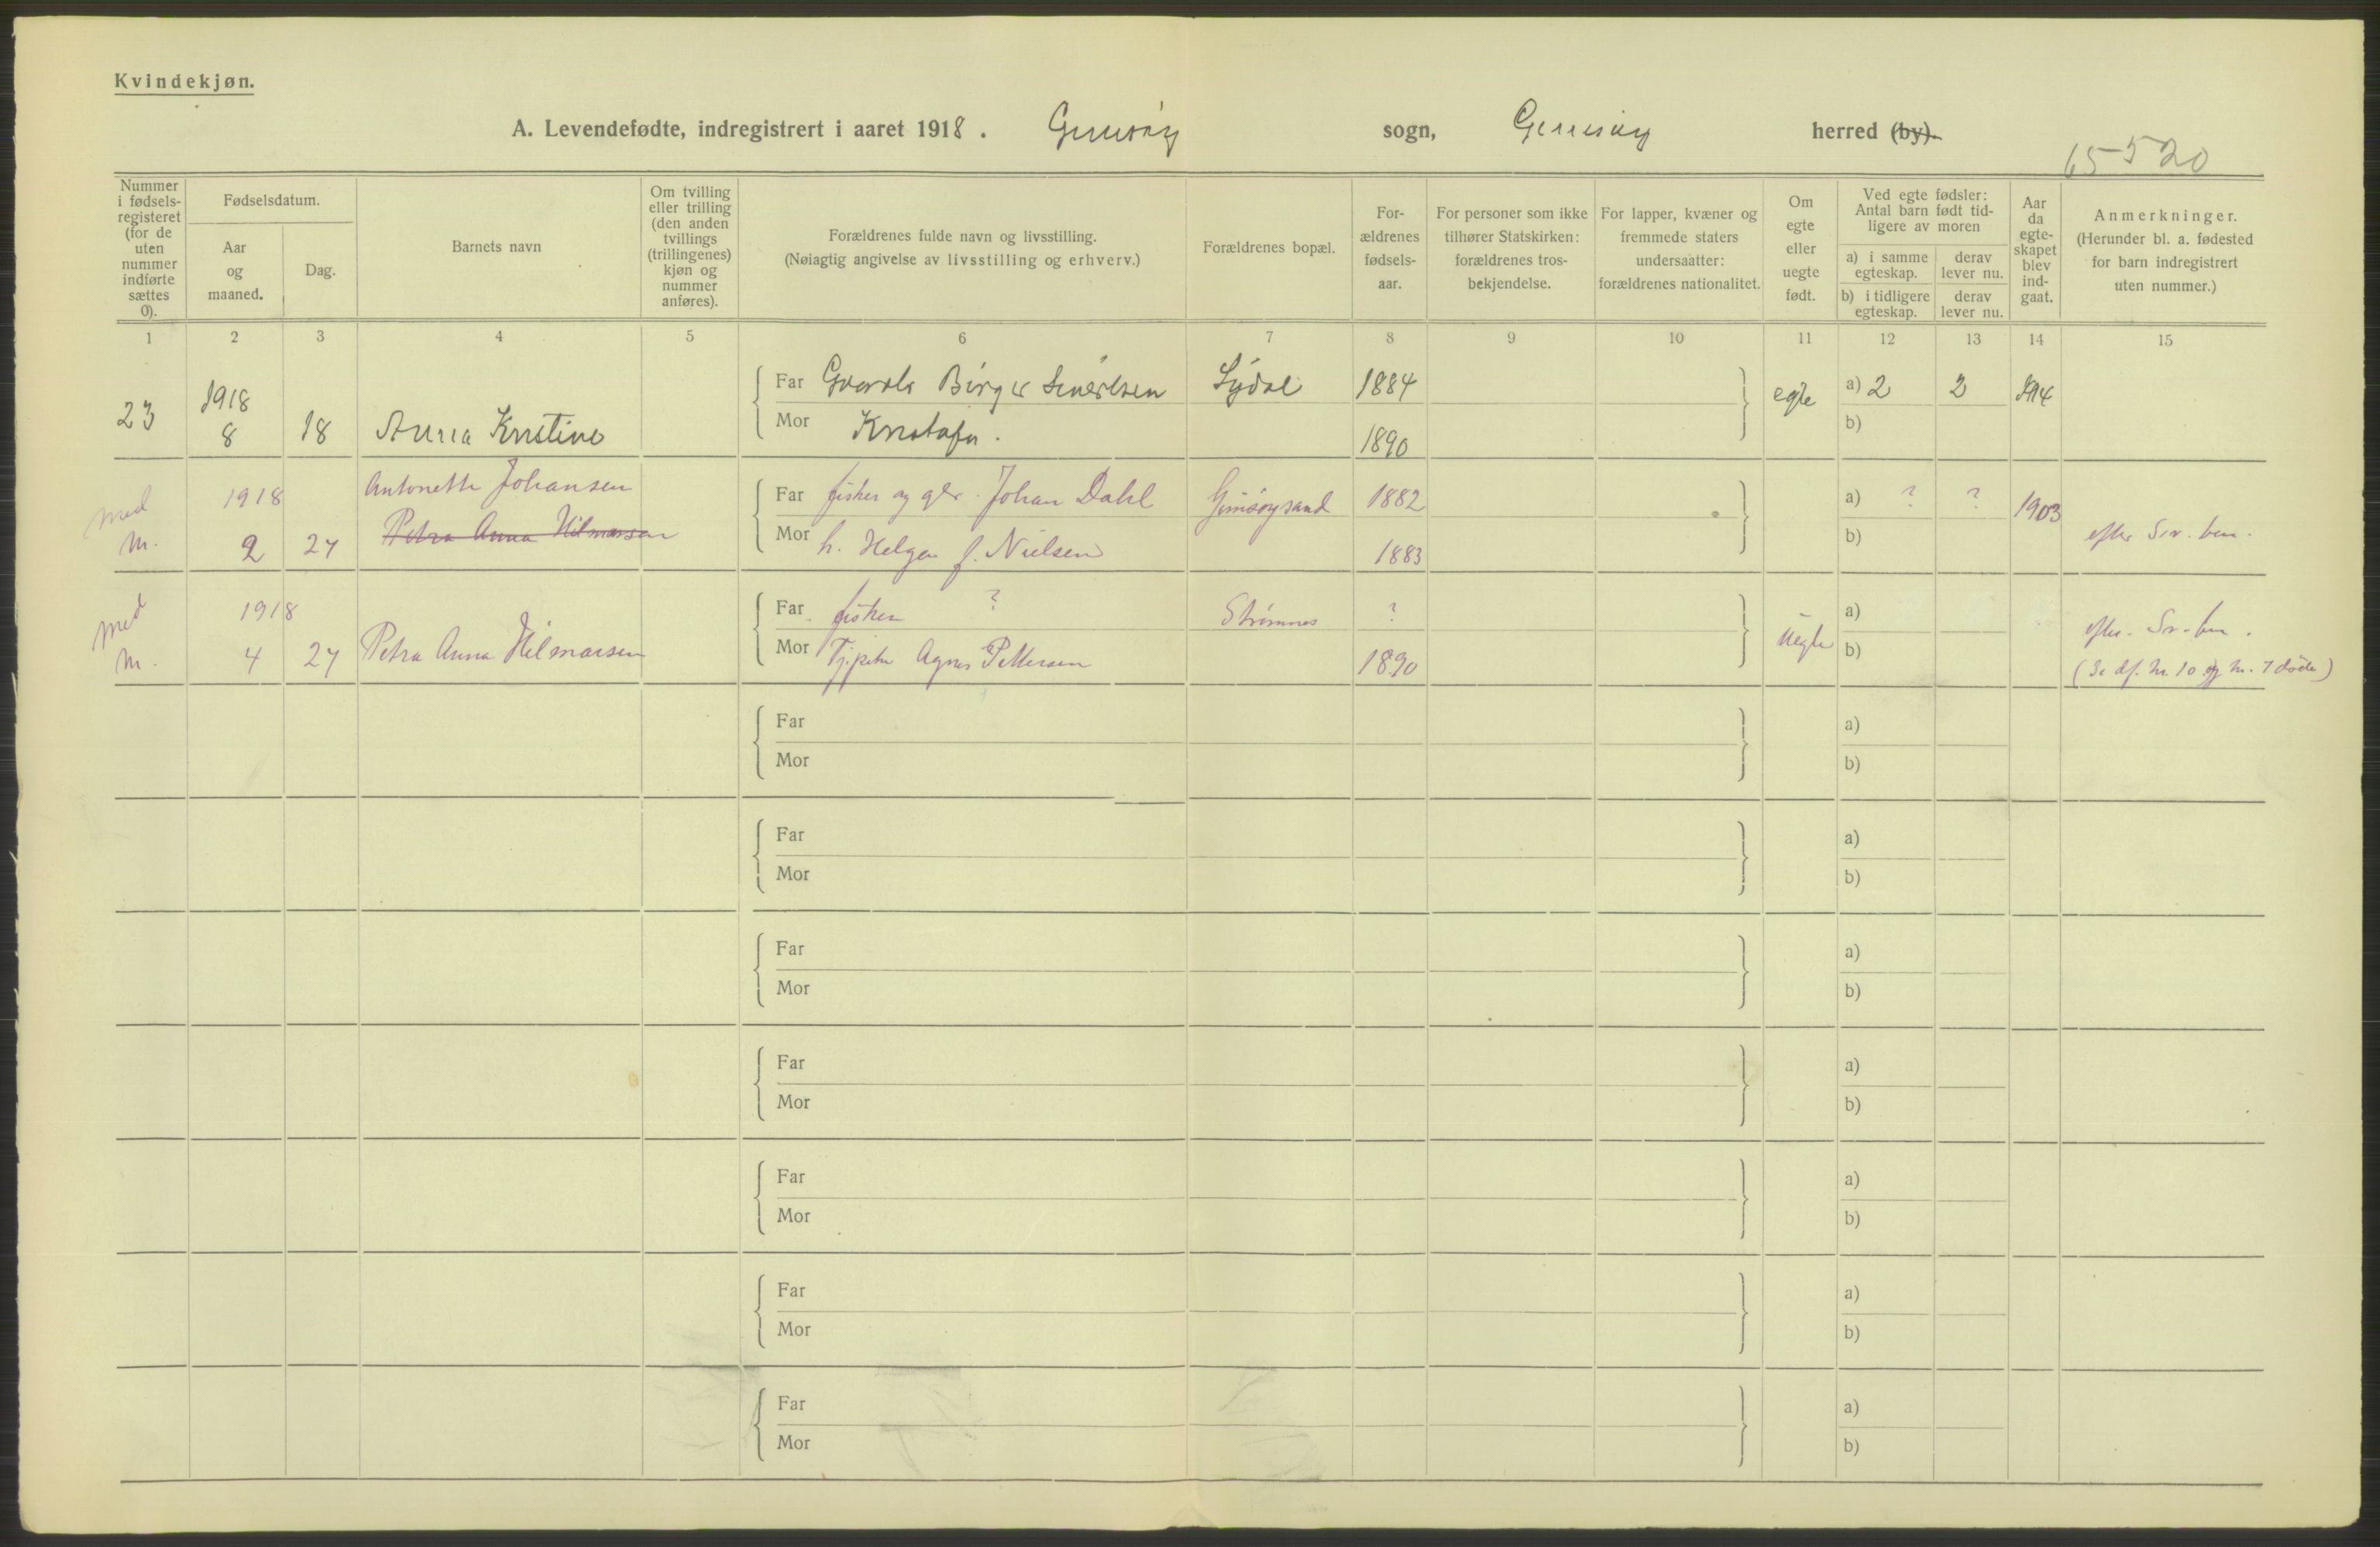 Kvindekjøn.
A. Levendefødte, indregistrert i aaret 1918. Gimsøy sogn, Gimsøy herred (by).
65520
Nummer i fødsels-registeret (for de uten nummer indførte sættes 0).
Fødselsdatum.
Aar og maaned.
Dag.
Barnets navn
Om tvilling eller trilling (den anden tvillings (trillingenes) kjøn og nummer anføres).
Forældrenes fulde navn og livsstilling.
(Nøiagtig angivelse av livsstilling og erhverv.)
Forældrenes bopæl.
For-ældrenes fødsels-aar.
For personer som ikke tilhører Statskirken: forældrenes tros-bekjendelse.
For lapper, kvæner og fremmede staters undersaatter: forældrenes nationalitet.
Om egte eller uegte født.
Ved egte fødsler: Antal barn født tid-ligere av moren
a) i samme egteskap.
derav lever nu.
b) i tidligere egteskap.
derav lever nu.
Aar da egte-skapet blev ind-gaat.
Anmerkninger.
(Herunder bl. a. fødested for barn indregistrert uten nummer.)
1 2 3 4 5 6 7 8 9 10 11 12 13 14 15
23 1918 8 18 Anna Kristine
Far Birger Lydal 1884 egte a) 2 2 1914
Mor 1890 b)
med m. 1918 2 27 Antonette Johansen
Petra Anna Hilmarsen
Far fisker og gbr. Johan Dahl Gimsøysand 1882 a) ? ? 1903
Mor h. Helga f. Nielsen 1883 b) efter
med m. 1918 4 27 Petra Anna Hilmarsen
Far fisker ? Strømnes ? uegte a) efter
Mor Tj.pike Agnes Pettersen 1890 b) (Se df. nr. 10 og nr. 7 døde)
Far a)
Mor b)
Far a)
Mor b)
Far a)
Mor b)
Far a)
Mor b)
Far a)
Mor b)
Far a)
Mor b)
Far a)
Mor b)